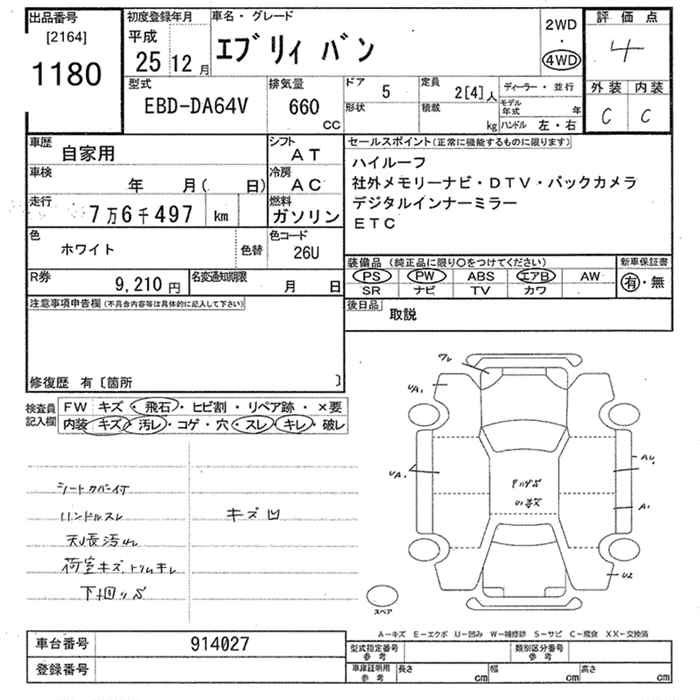 出品番号
[2164]
1180
初度登録年月
平成
25年12月
車名・グレード
エブリィ バン
2WD
・
4WD
評価点
4
外装 内装
C C
型式
EBD-DA64V
排気量
660
CC
ドア 5
形状
定員 2[4]人
積載 kg
ディーラー・並行
モデル年式 年
ハンドル 左・右
車歴 自家用
シフト AT
車検 年 月( 日)
冷房 AC
走行 7万6千497 km
燃料 ガソリン
色 ホワイト
色替
色コード 26U
R券 9,210円
名変通知期限 月 日
セールスポイント(正常に機能するものに限ります)
ハイルーフ
社外メモリーナビ・DTV・バックカメラ
デジタルインナーミラー
ETC
装備品(純正品に限り○をつけてください)
PS PW ABS エアB AW
SR ナビ TV カワ
新車保証書
有・無
後日品
取説
注意事項申告欄(不具合内容等は具体的に記入して下さい)
修復歴 有〔箇所 〕
検査員記入欄
FW キズ・飛石・ヒビ割・リペア跡・×要
内装 キズ・汚レ・コゲ・穴・スレ・キレ・破レ
シートカバー付
ハンドルスレ
キズ凹
天張汚レ
荷室キズ トリムキレ
下回り S
ワレ
UA1
UA1
A1
U2
小数
スペア
A-キズ E-エクボ U-凹み W-補修跡 S-サビ C-腐食 XX-交換済
車台番号 914027
登録番号
型式指定番号参考
類別区分番号参考
車庫証明用参考
長さ cm 幅 cm 高さ cm